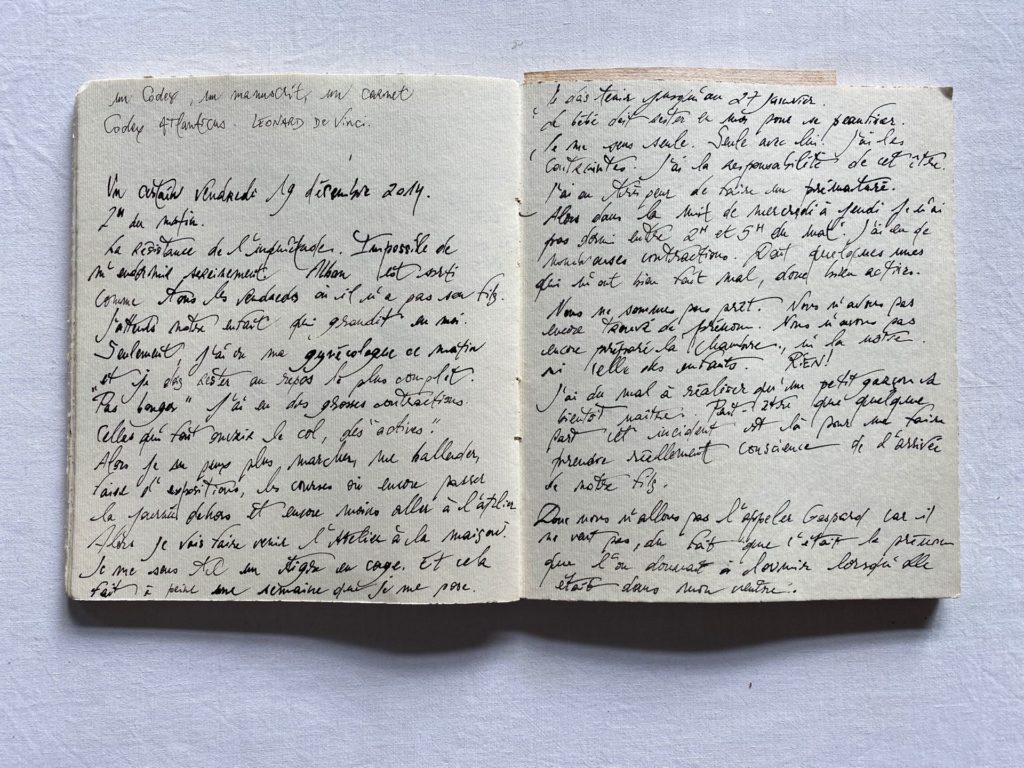 un Codex, un manuscrit, un carnet
Codex Atlanticus. LEONARD DE VINCI.
Un certain vendredi 19 décembre 2014.
2H du matin.
La Résistance de l'inquiétude. Impossible de
m'endormir sereinement. Alban est sorti
comme tous les vendredis où il n'a pas son fils.
J'attends notre enfant qui grandit en moi.
Seulement, j'ai vu ma gynécologue ce matin
et je dois rester au repos le plus complet.
"Pas bouger" J'ai eu des grosses contractions.
Celles qui font ouvrir le col, des "actives".
Alors je ne peux plus, marcher, me ballader,
faire d'expositions, les courses ou encore passer
la journée dehors et encore moins aller à l'atelier
Alors je vais faire venir l'Atelier à la maison.
Je me sens tel un tigre en cage. Et cela
fait à peine une semaine que je me pose.
Je dois tenir jusqu'au 27 janvier.
Le bébé doit rester en moi pour se peaufiner.
Je me sens seule. Seule avec lui. J'ai les
contraintes. J'ai la responsabilité de cet être.
J'ai eu très peur de faire un prématuré.
Alors dans la nuit de mercredi à jeudi je n'ai
pas dormi entre 2H et 5H du mat'. J'ai eu de
nombreuses contractions. Dont quelques unes
qui m'ont bien fait mal, donc bien actives.
Nous ne sommes pas prêt. Nous n'avons pas
encore trouvé de prénom. Nous n'avons pas
encore préparé la chambre, ni la notre
ni celle des enfants. RIEN!
J'ai du mal à réaliser qu'un petit garçon va
bientôt naître. Peut être que quelque
part cet incident est là pour me faire
prendre réellement conscience de l'arrivée
de notre fils.
Donc nous n'allons pas l'appeler Gaspard car il
ne veut pas, du fait que c'était le prénom
que l'on donnait à lorsqu'elle
était dans mon ventre.